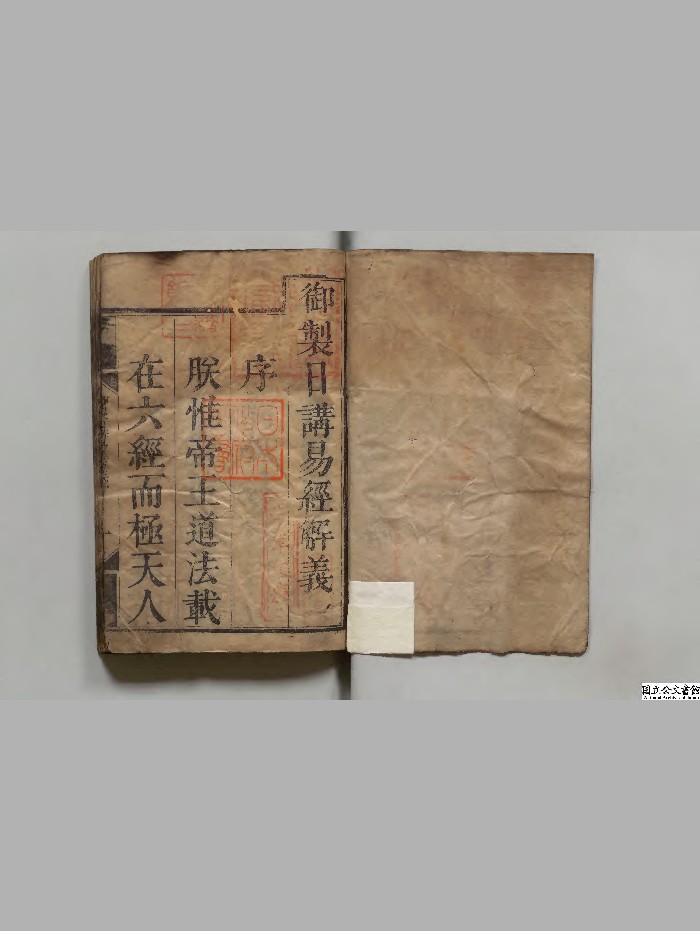 御製日講易經解義
序
朕惟帝王道法載
在六經而極天人
国立公文書館